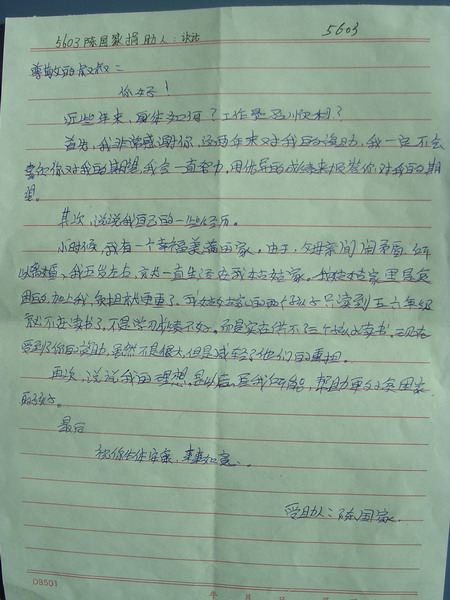 5603
5603 陈国家 捐助人:
尊敬的叔叔:
你好!
近些年来,身体如何?工作是否顺利?
首先,我非常感谢你,这两年来对我的资助,我一定不会
辜负你对我的期望,我会一直努力,用优异的成绩来报答你对我的期
望。
其次,说说我自己的一些经历。
小时候,我有一个幸福美满的家。由于父母亲间闹矛盾,
我五岁左右,就一直生活在我姑姑家。我姑姑家里是贫
困的,加上我,负担就更重了。我姑姑家的两个孩子只读到五六年级
就不在读书了,不是学习成绩不好。而是实在供不了三个孩子读书。现在
受到你的资助,虽然不是很大,但是减轻了他们的重担。
再次,说说我的理想。是以后,尽我所能,帮助更多的贫困家
的孩子。
最后
祝你身体安康,事事如意。
受助人:陈国家
DB501
年 月 日